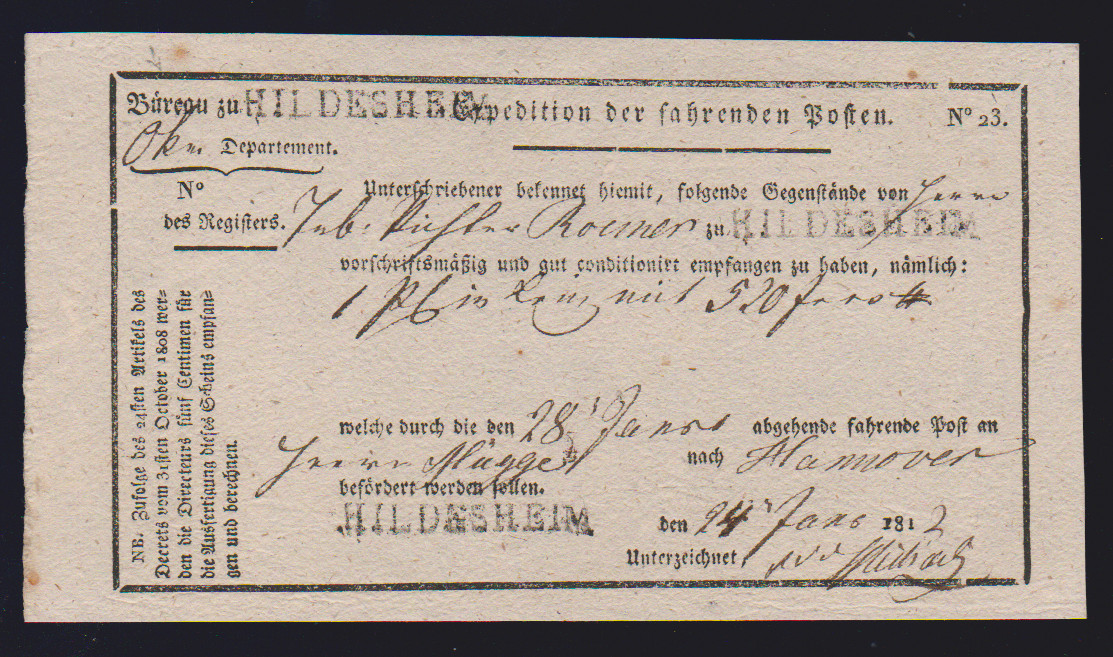 Büreau zu HILDESHEIM Expedition der fahrenden Posten. No 23.
Oker Departement.
No
des Registers.
Unterschriebener bekennet hiemit, folgende Gegenstände von Herrn
Richter Roemer zu HILDESHEIM
vorschriftsmäßig und gut conditionirt empfangen zu haben, nämlich:
1 in mit 520
welche durch die den 28 Janr abgehende fahrende Post an
Herrn Mügge nach Hannover
befördert werden sollen.
HILDESHEIM
den 24 Janr 1812
Unterzeichnet
NB. Zufolge des 24sten Artikels des
Decrets vom 31sten October 1808 wer-
den die Directeurs fünf Centimen für
die Ausfertigung dieses Scheins empfan-
gen und berechnen.